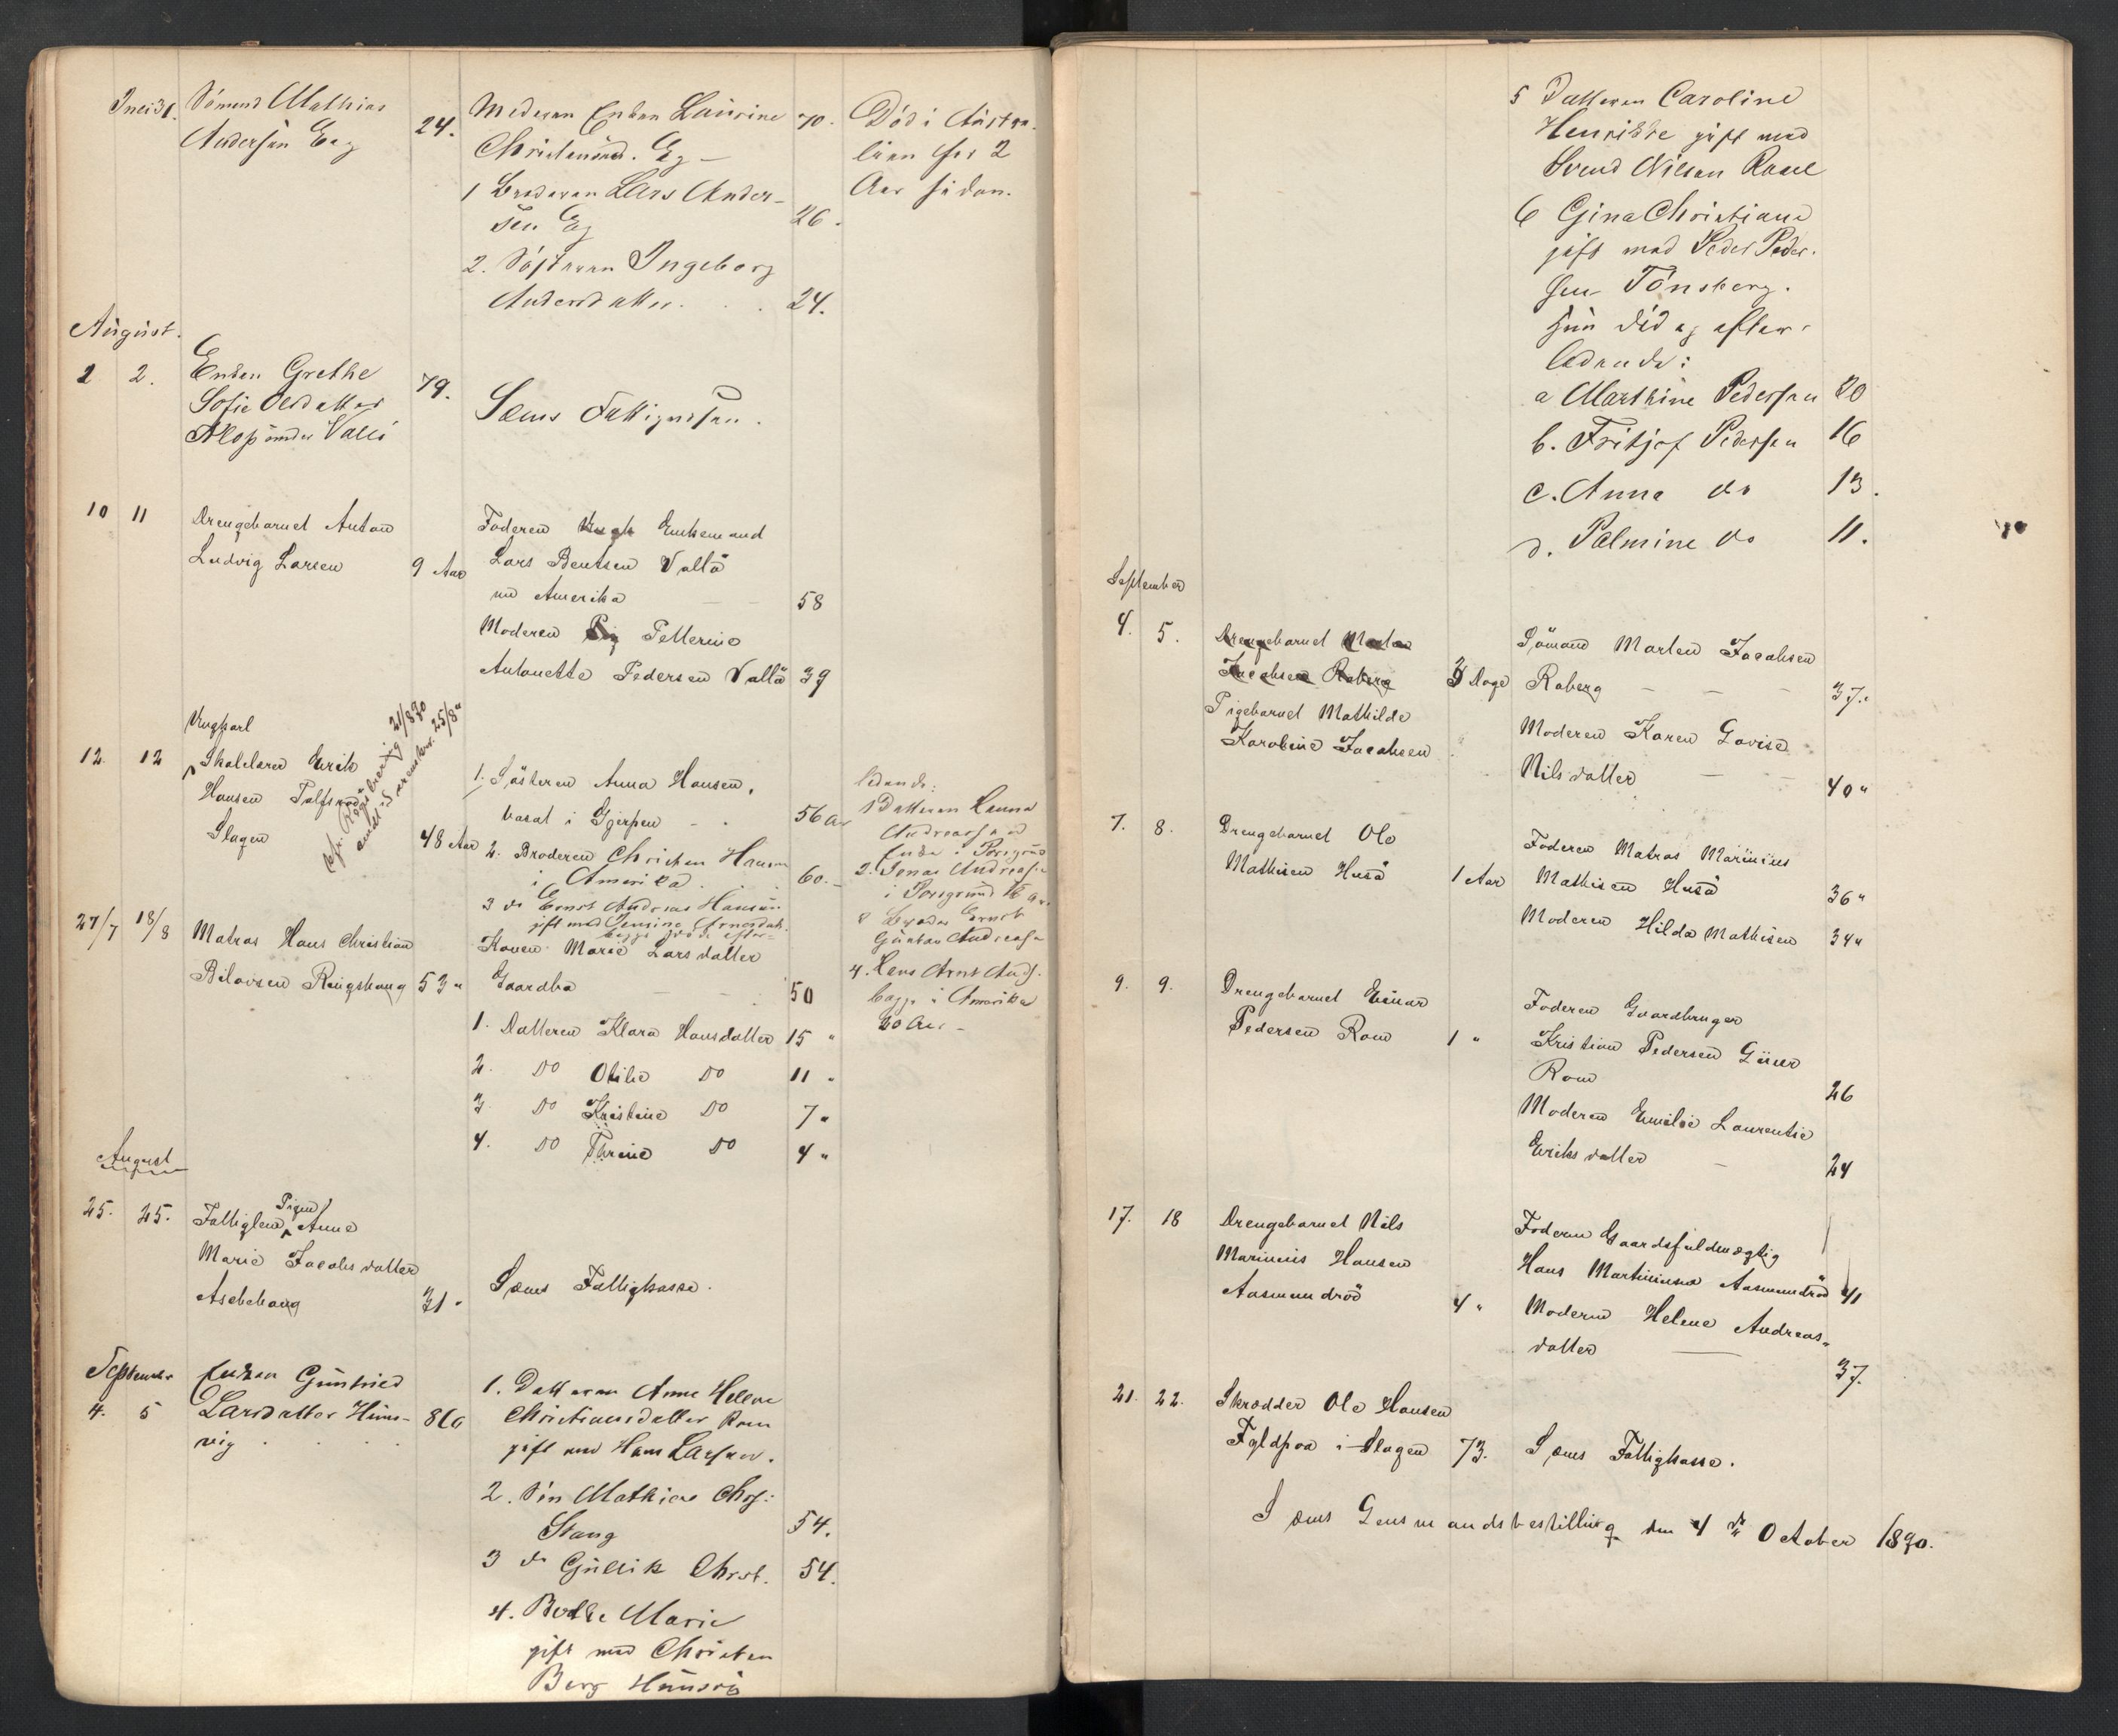 31. Sömand Mathias
Andersen Eeg 24.
Moderen Enken Laurine 70.
Christensd. Eg
1 Broderen Lars Ander-
sen Eg 26.
2. Søsteren Ingeborg
Andersdatter 24.
Död i
for 2
Aar siden.
August.
2 2. Enken Grethe
Sofie Olsdatter 79.
Vallö
Sæms Fattigvæsen.
10 11 Drengebarnet Anton
Ludvig Larsen 9 Aar
Faderen Enkemand
Lars Bentsen Vallö
nu Amerika 58
Moderen Pig Petterine
Antonette Pedersen Vallö 39
Ungkarl
12. 12 Skolelærer Erik
Hansen
Slagen 48 Aar
21/8 90
25/8 "
1. Søsteren Anna Hansen,
bosat i Gjerpen 56 Aar
2. Broderen Christen Hansen
i Amerika. 60.
3 do Ernst Andreas Hansen
gift med
begge døde efter-
ladende:
1 Datteren Hanna
Andreassen
Enke i Porsgrund
2. Jonas Andreasen
i Porsgrund
Ernst
Gustav Andreasen
4. Hans Arnt Andr.
begge i Amerika
20 Aar
27/7 18/8 Matros Hans Christian
Bilovsen Ringshaug 53 "
Konen Marie Larsdatter
Gaardba 50
1. Datteren Klara Hansdatter 15 "
2. Do Otilie Do 11 "
3. Do Kristine Do 7 "
4. Do Thrine Do 4 "
August
25. 25. Fattiglem Pigen Anne
Marie Jacobsdatter
Askehaug 31 "
Sæms Fattigkasse.
September Enken Gunhild
4. 5 Larsdatter Huns- 86
vig
1. Datteren Anne Helene
Christiansdatter Rom
gift med Hans Larsen.
2. Sön Mathias Chrs:
Stang 54.
3 do Gullik Christ. 54.
4. Berthe Marie
gift med Christen
Berg Hunsö
5 Datteren Caroline
Henrikke gift med
Svend Nilsen Roael
6 Gina Christiane
gift med Peder Peder-
sen Tönsberg.
hun död og efter-
ladende:
a Marthine Pedersen 20
b. Fritjof Pedersen 16
c. Anna do 13.
d. Palmine do 11.
September
4. 5. Drengebarnet Morten
Jacobsen Roberg 3 Dage
Pigebarnet Mathilde
Karoline Jacobsen
Sömand Morten Jacobsen
Roberg 37 "
Moderen Karen Lovise
Nilsdatter 40 "
7. 8. Drengebarnet Ole
Mathisen Husö 1 Aar
Faderen Matros Marinius
Mathisen Husö 36 "
Moderen Hilda Mathisen 34 "
9. 9. Drengebarnet Einar
Pedersen Rom 1 "
Faderen Gaardbruger
Kristian Pedersen
Rom 26
Moderen Emilie Laurentie
Eriksdatter 24
17. 18 Drengebarnet Nils
Marinius Hansen
Aasmundröd 4 "
Faderen Gaardsfuldmægtig
Hans Martinius Aasmundröd 41
Moderen Helene Andreas-
datter 37.
21. 22. Skrædder Ole Hansen
Fyldpaa i Slagen 73.
Sæms Fattigkasse.
Sæms Lensmandsbestilling den 4de October 1890.